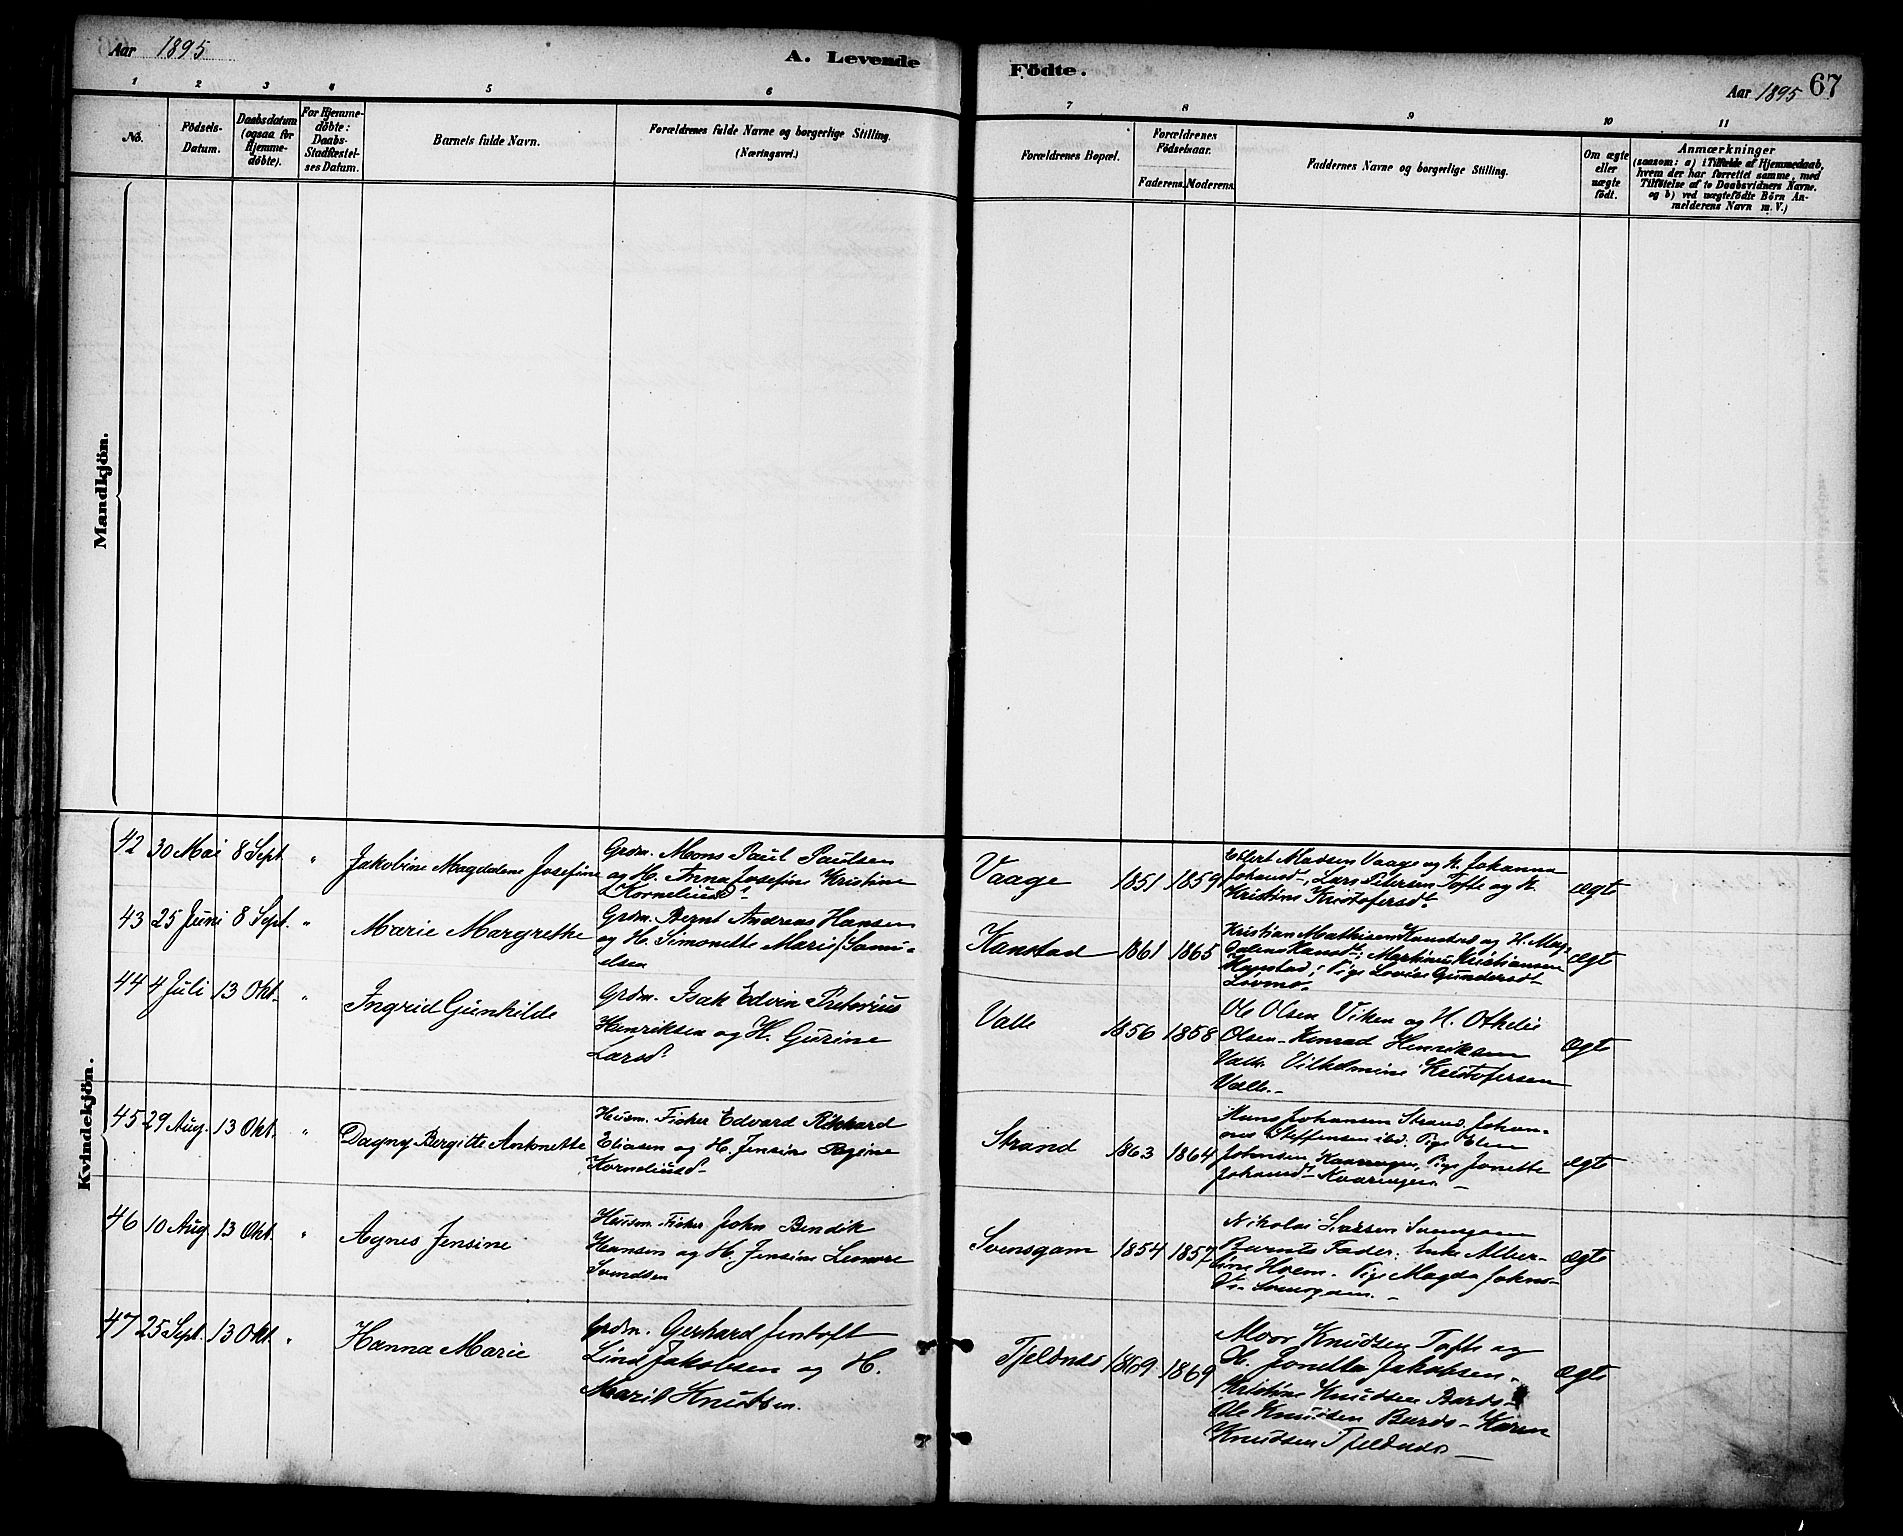 Aar 1895
A. Levende
1 2 3 4 5 6
No.
Födsels-
Datum.
Daabsdatum
(ogsaa for
Hjemme-
döbte).
For Hjemme-
döbte:
Daabs-
Stadfæstel-
ses Datum.
Barnets fulde Navn.
Forældrenes fulde Navne og borgerlige Stilling.
(Næringsvei.)
Mandkjön.
Kvindekjön.
42 30 Mai 8 Sept. " Jakobine Magdalene Josefine
Grdm. Mons Paul Paulsen
og H. Anna Josefine Kristine
Korneliusd.
43 25 Juni 8 Sept. " Marie Margrethe
Grdm. Bernt Andreas Hansen
og H. Simonette Marie Samu-
elsen
44 4 Juli 13 Okt. " Ingrid Gunhilde
Grdm. Isak Edvin Pretorius
Henriksen og H. Gurine
Larsd.
45 29 Aug. 13 Okt. " Dagny Bergitte Antonette
Husm. Fisker Edvard Rikkard
Eliasen og H. Jensine Regine
Korneliusd.
46 10 Aug 13 Okt. " Agnes Jensine
Husm. Fisker John Bendik
Hansen og H. Jensine Leonore
Svendsen
47 25 Sept. 13 Okt. " Hanna Marie
Grdm. Gerhard Jentoft
Lind Jakobsen og H.
Marit Knutsen.
Födte.
Aar 1895 67
7 8 9 10 11
Forældrenes Bopæl.
Forældrenes
Födselsaar.
Faderens. Moderens.
Faddernes Navne og borgerlige Stilling.
Om ægte
eller
uægte
födt.
Anmærkninger
(saasom: a) i Tilfælde af Hjemmedaab,
hvem der har forrettet samme, med
Tilföielse af to Daabsvidners Navne,
og b) ved uægtefödte Börn An-
melderens Navn m. V.)
Vaage 1851 1859
Ellert Madsen Vaage og K. Johanna
Johansd., Lars Petersen Tofte og K.
Kristine Kristofersd.
ægte
Kanstad 1861 1865
Kristian Mathisen Kanstad og H. Mag-
dalena Hansd.; Martinus Kristiansen
Kanstad; Pige Lovise Gundersd.
Lövmo.
ægte
Valle 1856 1858
Ole Olsen Viken og H. Othelie
Olsen - Konrad Henriksen
Valle. Vilhelmine Kristofersen
Valle. -
ægte
Strand 1863 1864
Hans Johansen Strand. Johan-
nes Steffensen ibd. Pige Elen
Johnsen Kaaringen, Pige Jonette
Johansd. Kvaringen. -
ægte
Svensgam 1854 1857
Nikolai Larsen Svensgam
Barnets Fader: Enke Alber-
tine Hoem. Pige Magda Johns-
d. Svensgam. -
ægte
Tjeldnes 1869 1869
Moor Knudsen Tofte og
H. Jonetta Jakobsen.
Kristine Knudsen Bards-
Ole Knudsen Bards - Karen
Knudsen Tjeldnes -
ægte